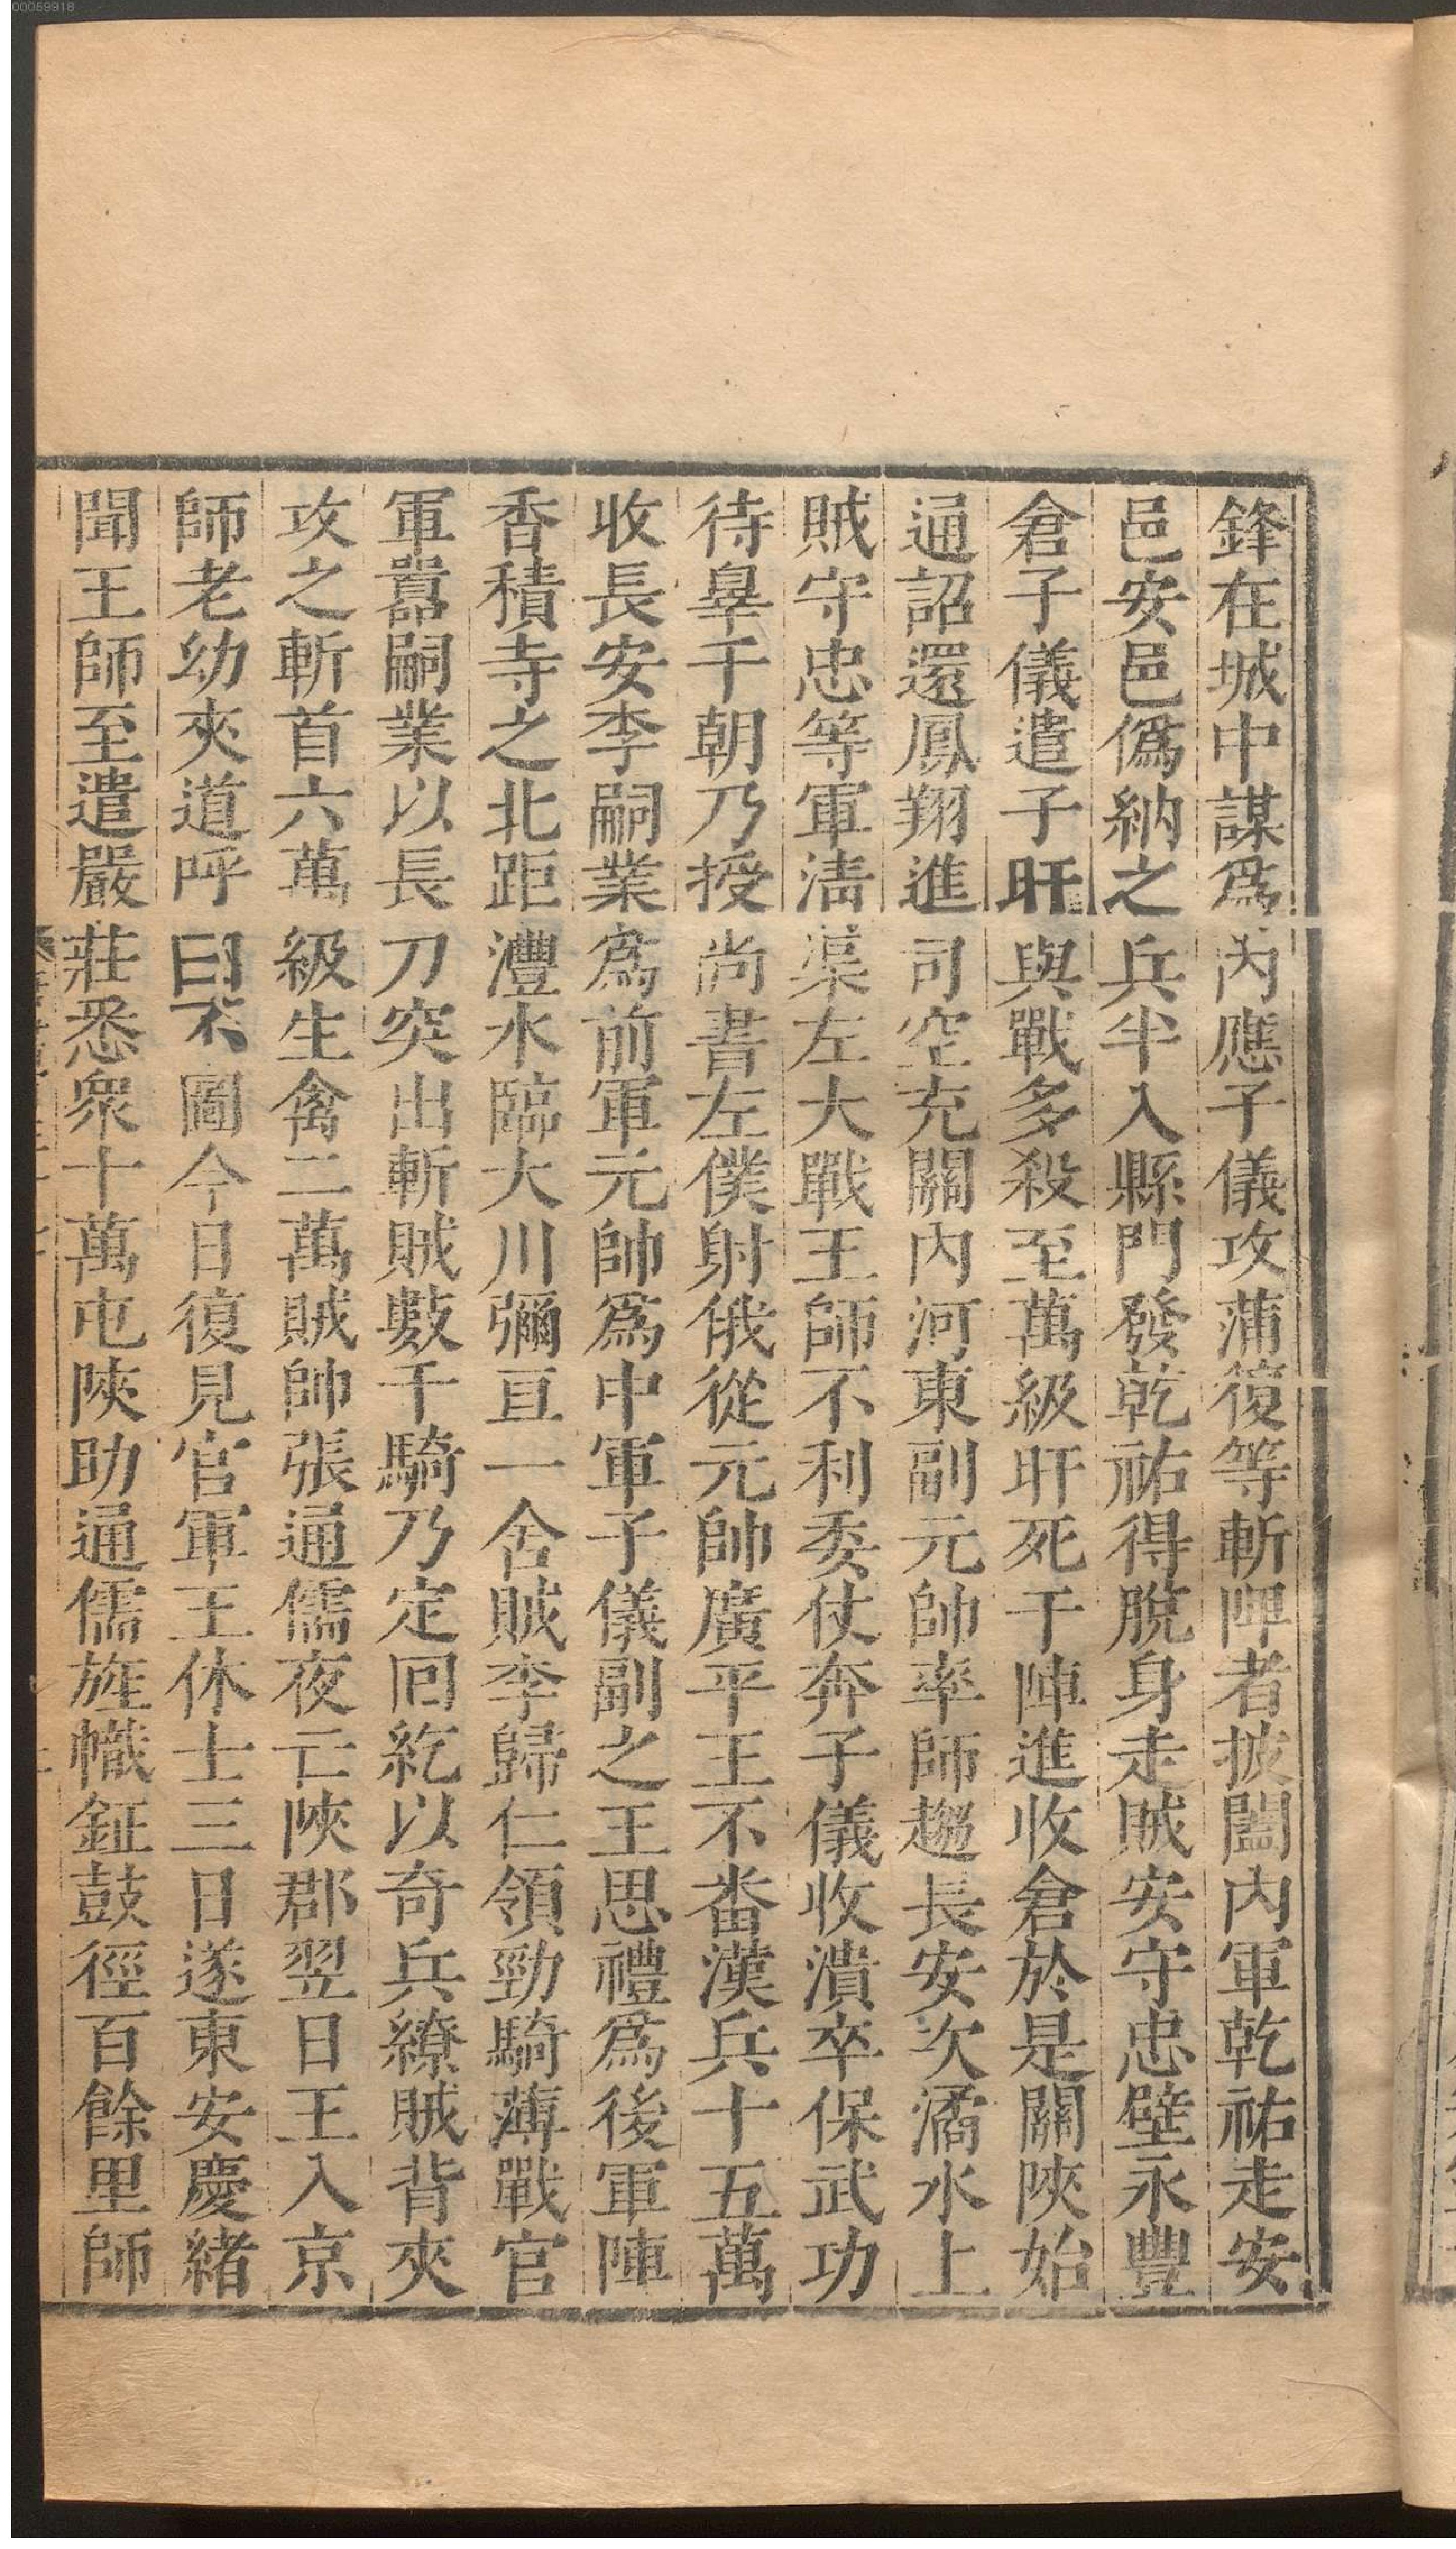 00059918
鋒在城中謀爲內應子儀攻蒲復等斬陴者披闔內軍乾祐走安
邑安邑僞納之兵半入縣門發乾祐得脫身走賊安守忠壁永豐
倉子儀遣子旰與戰多殺至萬級旰死于陣進收倉於是關陝始
通詔還鳳翔進司空充關內河東副元帥率師趨長安次潏水上
賊守忠等軍清渠左大戰王師不利委仗奔子儀收潰卒保武功
待辠于朝乃授尚書左僕射俄從元帥廣平王不番漢兵十五萬
收長安李嗣業爲前軍元帥爲中軍子儀副之王思禮爲後軍陣
香積寺之北距灃水臨大川彌亘一舍賊李歸仁領勁騎薄戰官
軍囂嗣業以長刀突出斬賊數千騎乃定回紇以奇兵繚賊背夾
攻之斬首六萬級生禽二萬賊帥張通儒夜亡陝郡翌日王入京
師老幼夾道呼曰不圖今日復見官軍王休士三日遂東安慶緒
聞王師至遣嚴莊悉衆十萬屯陝助通儒旌幟鉦鼓徑百餘里師